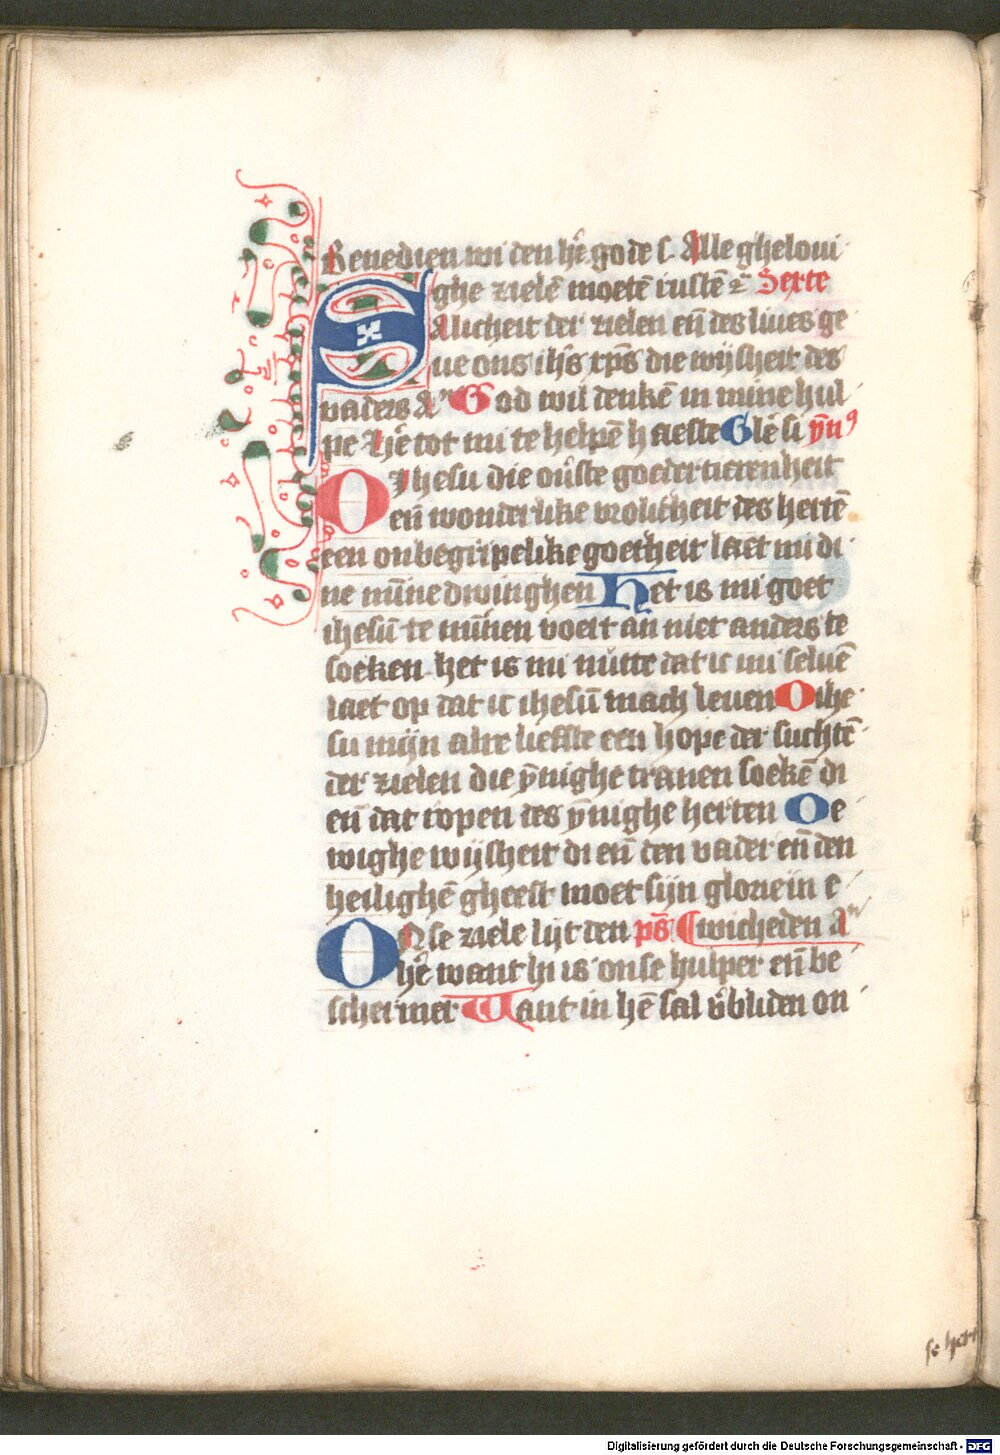 Benedien wi den hē gode ſ. Alle gheloui
ghe zielē moetē ruſtē ⁊ Serte
Salicheit der zielen eñ des liues ge
ue ons ihs xps die wijſheit des
vaders A God wil denkē in mine hul
pe Hē tot mi te helpē haeſte Glē ſi ȳn⁹
O Iheſu die ouſte goedertierenheit
eñ wonderlike vrolicheit des hertē
een onbegripelike goetheit laet mi di
ne mīne dwinghen Het is mi goet
iheſū te mīnen voert an niet anders te
ſoeken het is mi nutte dat ic mi ſeluē
laet op dat ic iheſū mach leuen O ihe
ſu mijn alre liefſte een hope der ſuchtē
der zielen die ȳnighe tranen ſoekē di
eñ dat ropen des ȳnighe herten O e
wighe wijſheit di eñ den vader eñ den
heilighē gheeſt moet ſijn glorie in e
Onſe ziele lijt den ps ewicheden A
hē want hi is onſe hulper eñ be
ſchermer Want in hē ſal vbliden on
Digitalisierung gefördert durch die Deutsche Forschungsgemeinschaft - DFG